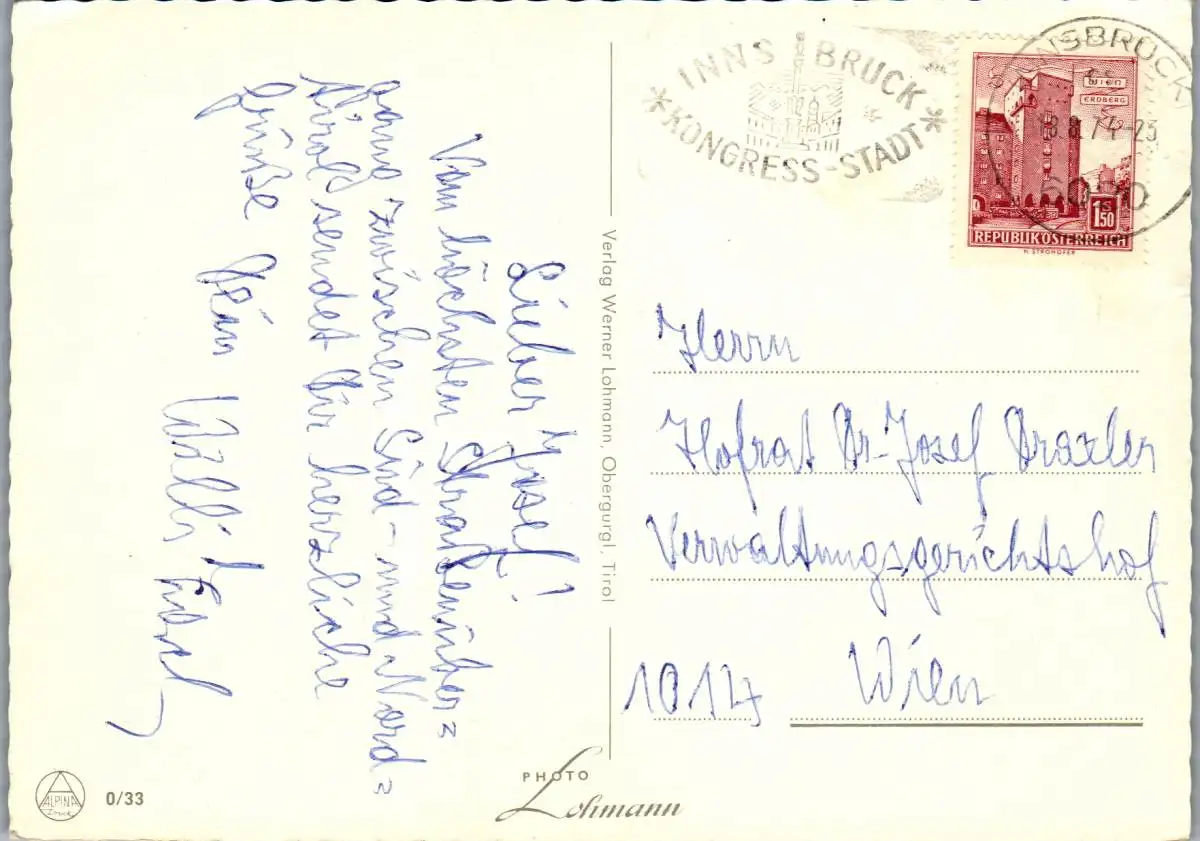 Lieber Josef!
Vom höchsten Straßenüber=
gang zwischen Süd- und Nord=
tirol sendet Dir herzliche
Grüße Dein Willi
INNSBRUCK
*KONGRESS-STADT*
INNSBRUCK
18.8.74-23
6020
WIEN
ERDBERG
1S50
REPUBLIK ÖSTERREICH
H. STROHOFER
Verlag Werner Lohmann, Obergurgl, Tirol
Herrn
Hofrat Dr. Josef Draxler
Verwaltungsgerichtshof
1014 Wien
ALPINA
Druck
0/33
PHOTO
Lohmann